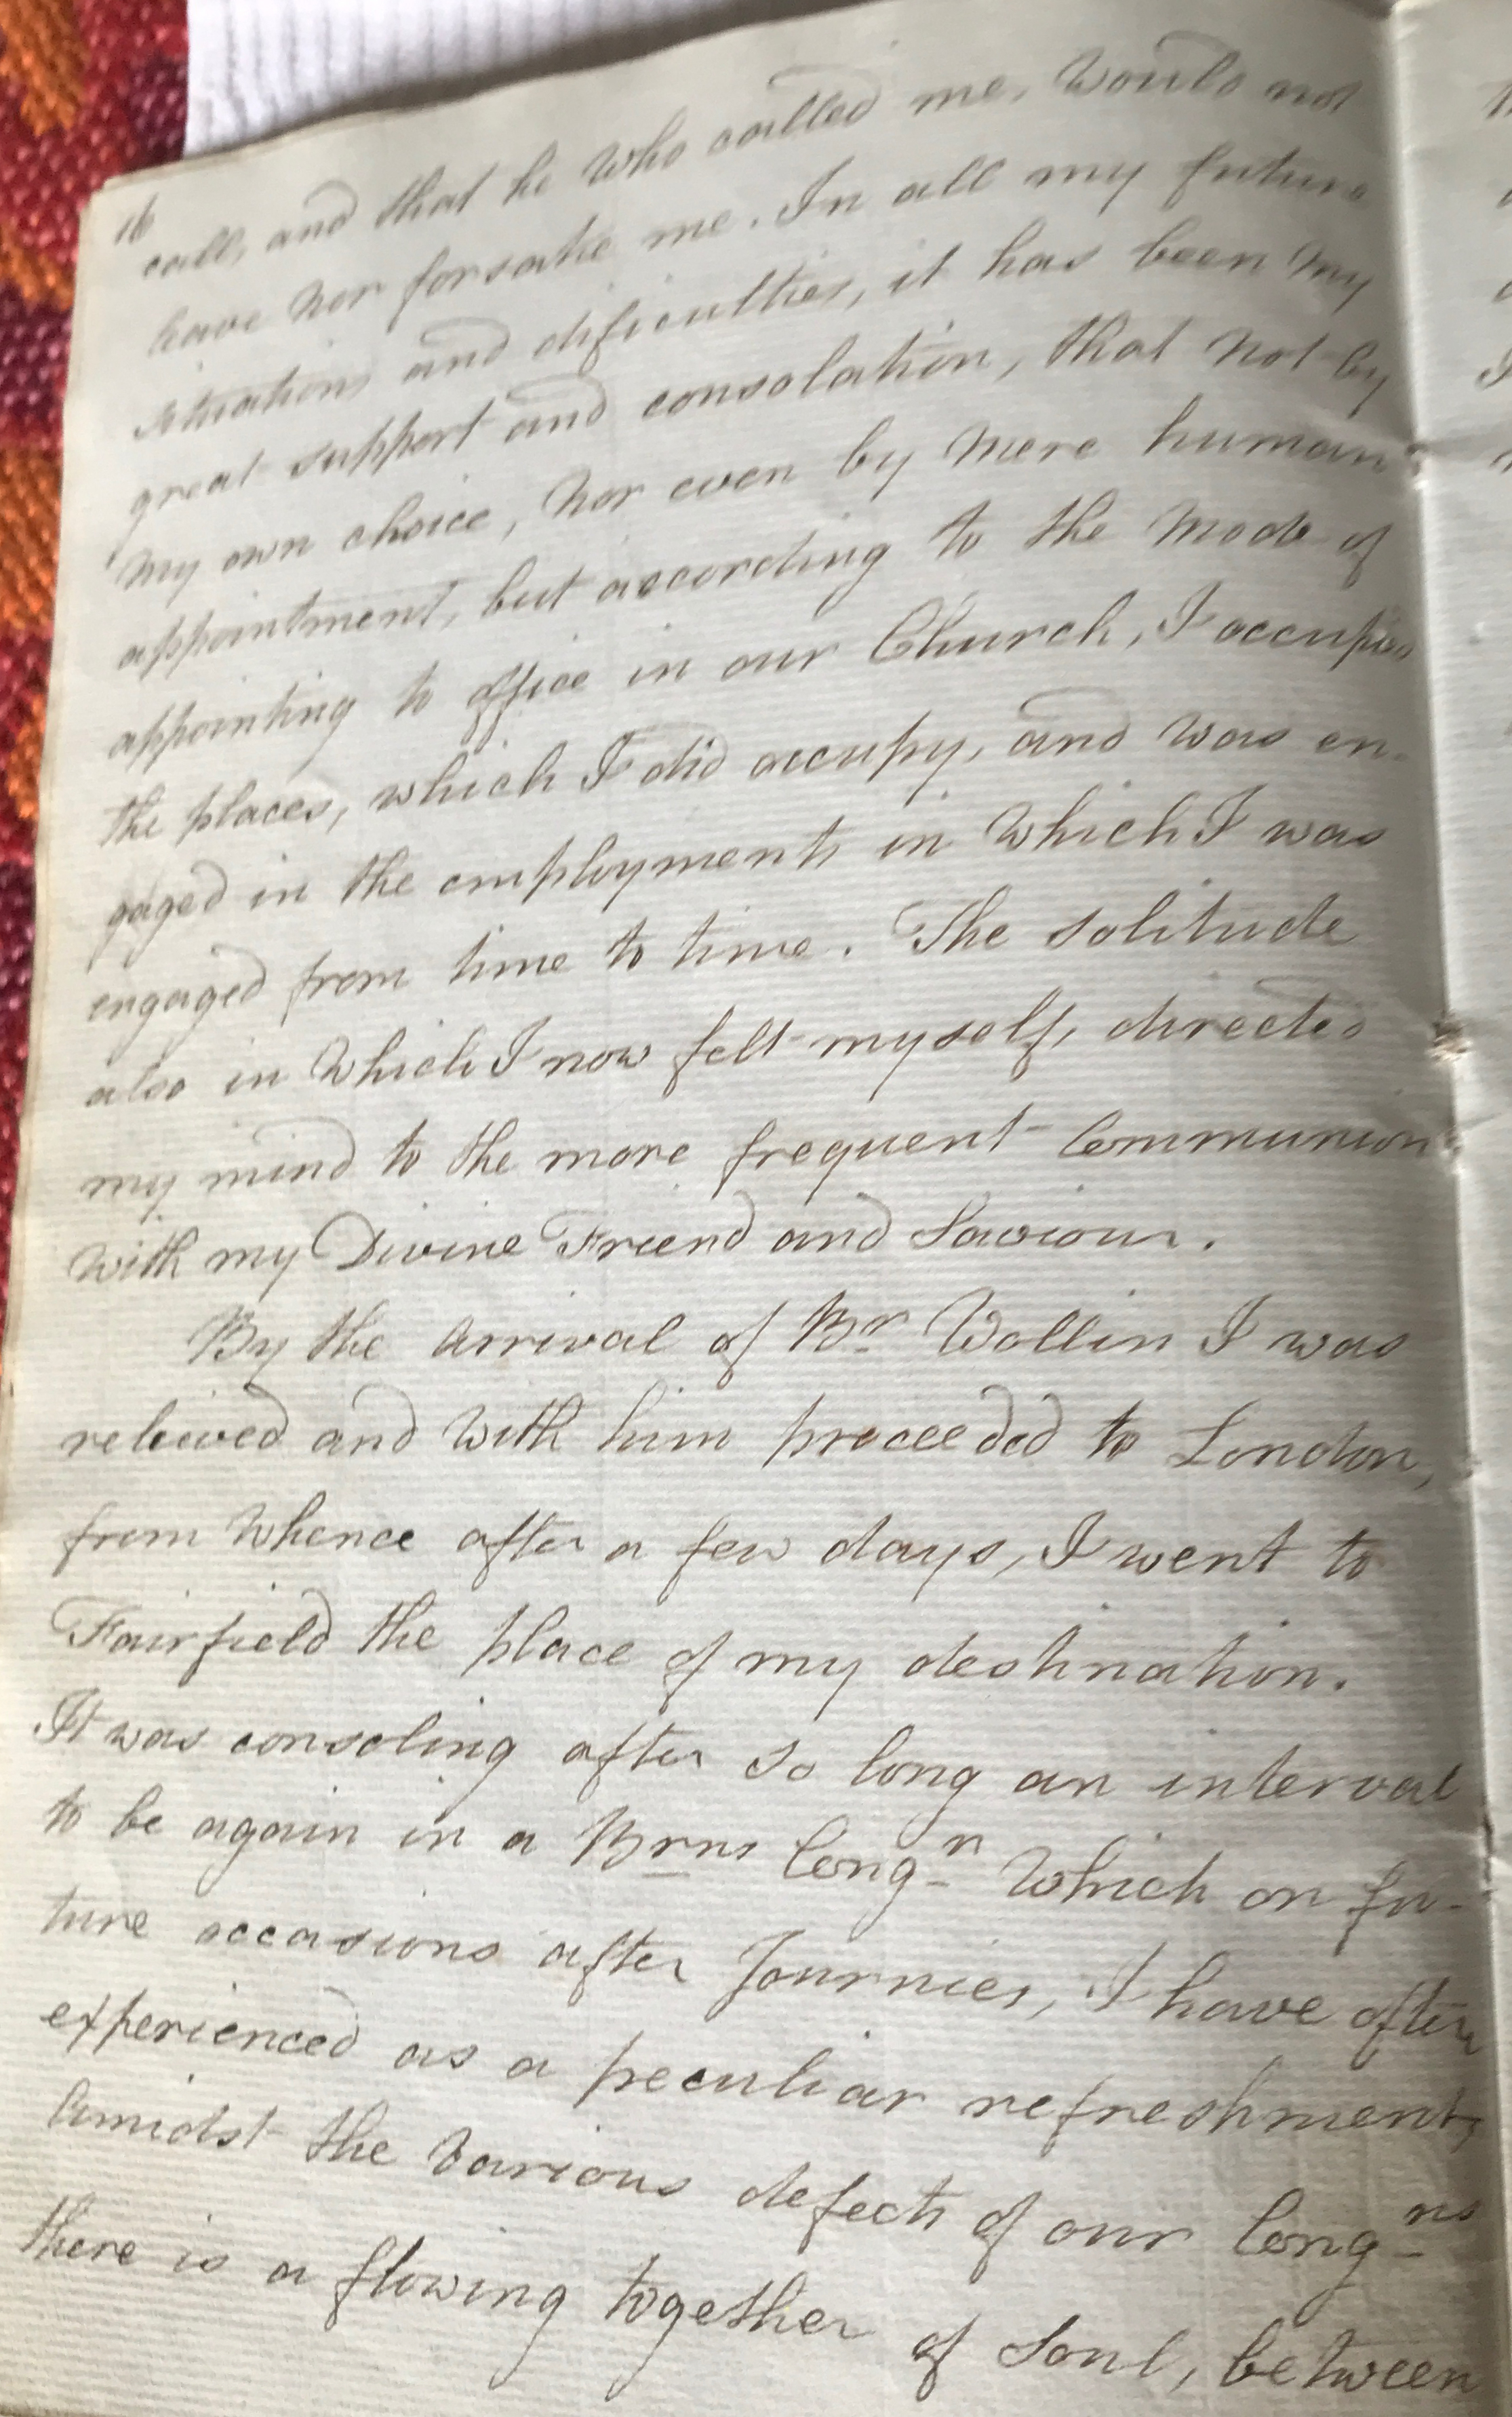 16
call, and that he who called me, would not
leave nor forsake me. In all my future
situations and dificulties, it has been my
great support and consolation, that not by
my own choice, nor even by mere human
appointment, but according to the mode of
appointing to office in our Church, I occupied
the places, which I did occupy, and was en-
gaged in the employments in which I was
engaged from time to time. The solitude
also in which I now felt myself, directed
my mind to the more frequent Communion
with my Divine Friend and Saviour.
By the arrival of Br Wollin I was
releived and with him proceeded to London,
from whence after a few days, I went to
Fairfield the place of my destination.
It was consoling after so long an interval
to be again in a Brns Congn which on fu-
ture occasions after Journies, I have often
experienced as a peculiar refreshment,
Amidst the various defects of our Congns
there is a flowing together of Soul, between